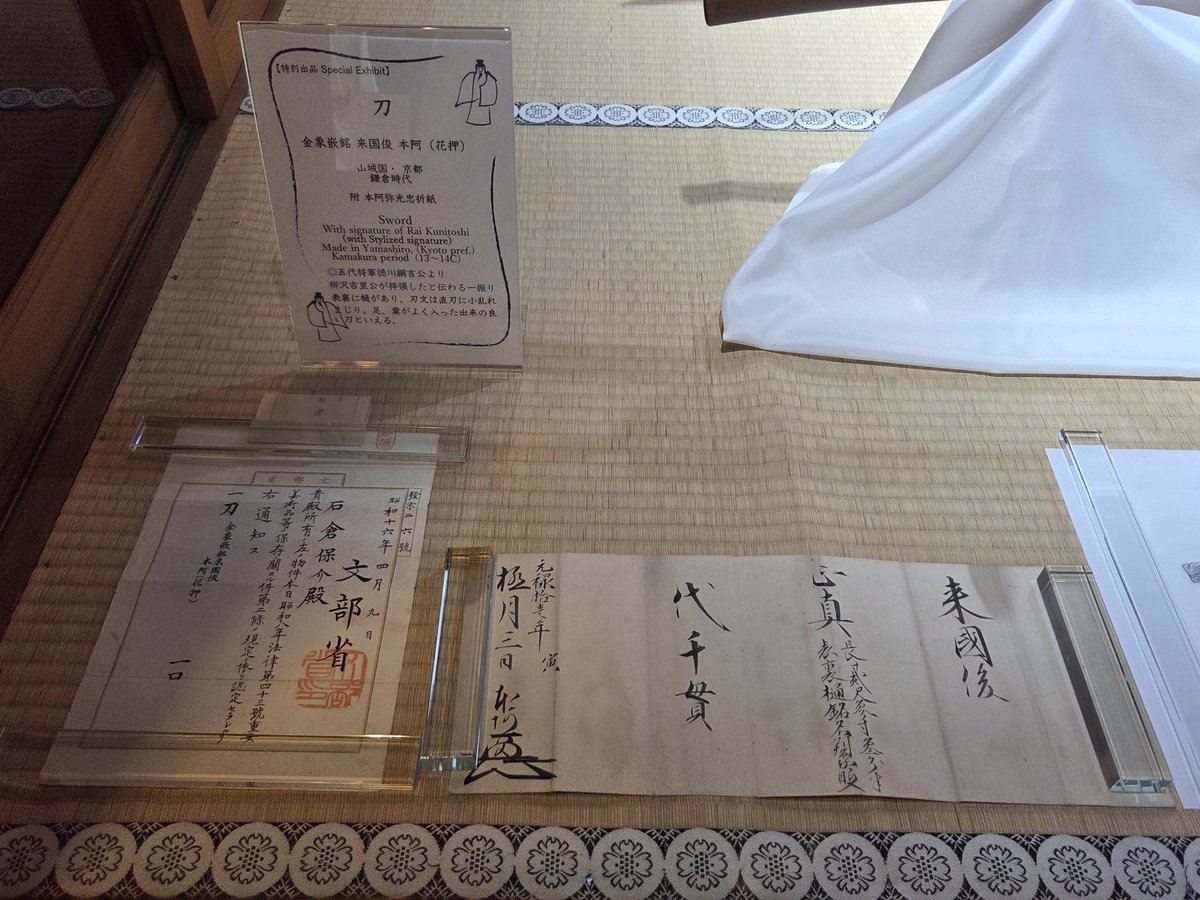 【特別出品 Special Exhibit】
刀
金象嵌銘 来国俊 本阿（花押）
山城国・ 京都
鎌倉時代
附 本阿弥光忠折紙
Sword
With signature of Rai Kunitoshi
(with Stylized signature)
Made in Yamashiro, (Kyoto pref.)
Kamakura period（13～14C）
◎五代将軍徳川綱吉公より
柳沢吉里公が拝領したと伝わる一振り
表裏に樋があり、刃文は直刃に小乱れ
まじり、足、葉がよく入った出来の良
い刀といえる。
文部省
昭和十六年 四月 九日
文部省
石倉保介殿
貴殿所有ノ左ノ物件本日昭和八年法律第四十三號重要
美術品等ノ保存ニ關スル件第二條ノ規定ニ依リ認定セラレタリ
右通知ス
一刀 金象嵌銘來國俊
本阿（花押） 一口
来國俊
正真
代千貫
元禄拾壱年 寅
極月三日